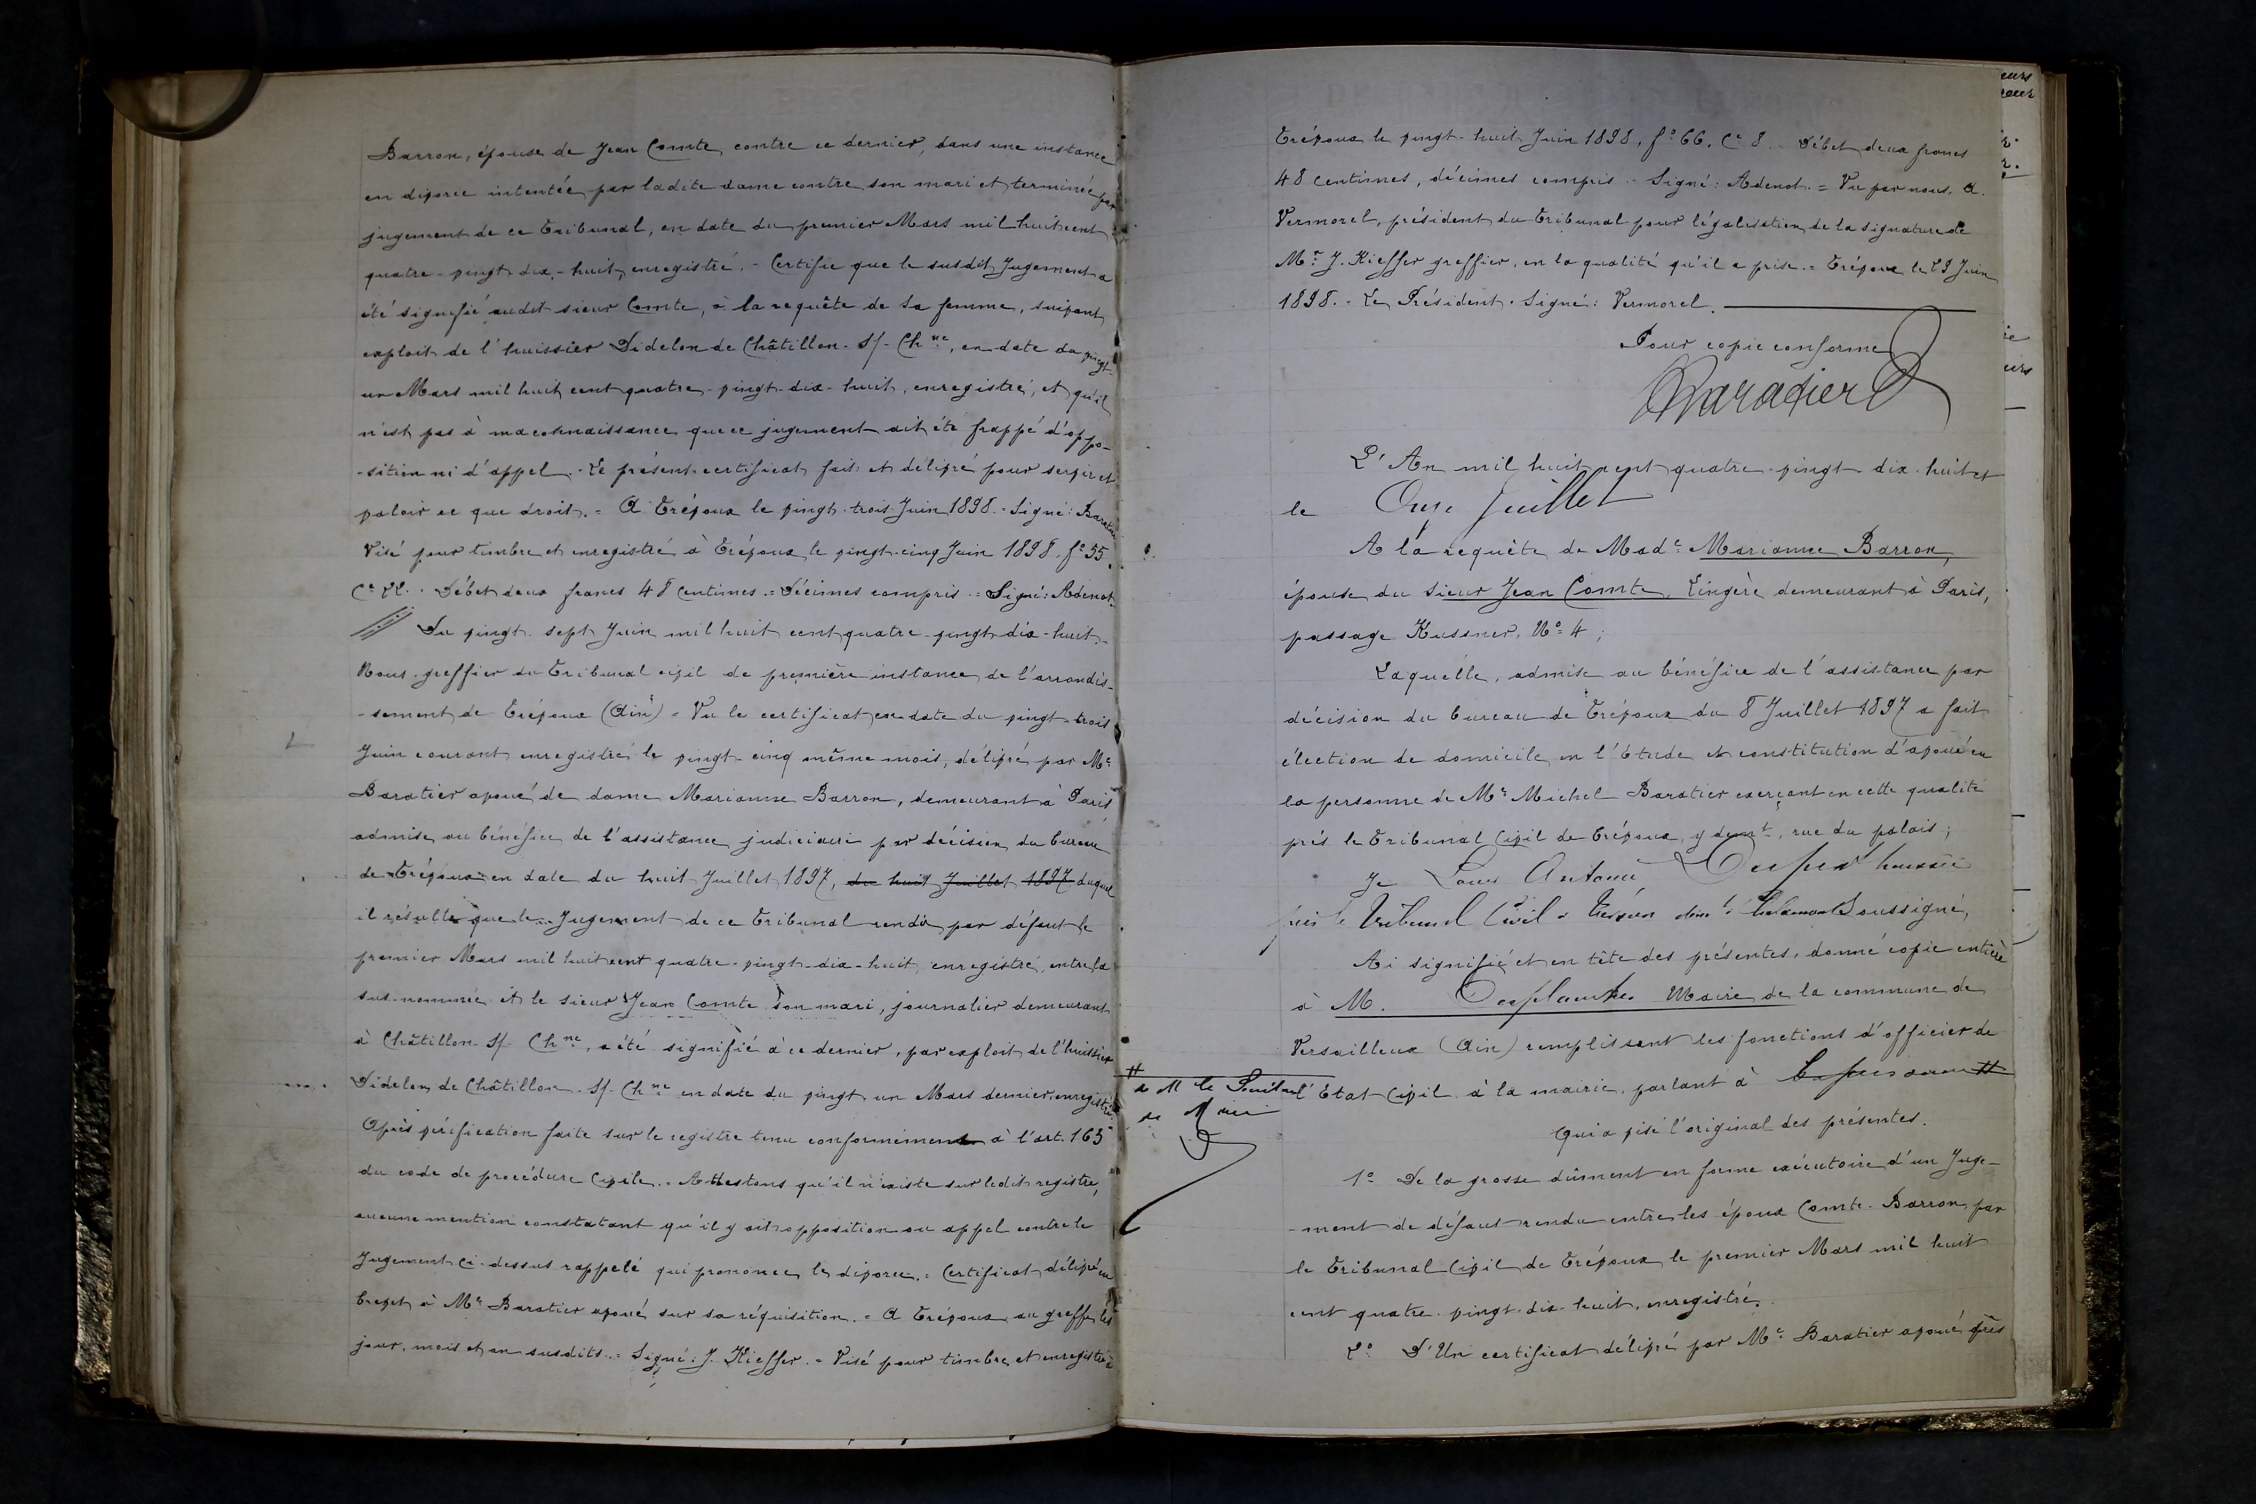 Barron, épouse de Jean Comte, contre ce dernier, dans une instance
en divorce intentée par ladite dame contre son mari et terminée par
jugement de ce Tribunal, en date du premier Mars mil huit cent
quatre-vingt-dix-huit, enregistré. - Certifie que le susdit Jugement a
été signifié audit sieur Comte, à la requête de sa femme, suivant
exploit de l'huissier Didelon de Châtillon-s/-Chne, en date du vingt-
un Mars mil huit cent quatre-vingt-dix-huit, enregistré, et qu'il
n'est pas à ma connaissance que ce jugement ait été frappé d'oppo-
-sition ni d'appel. - Le présent certificat fait et délivré pour servir et
valoir ce que droit. = A Trévoux le vingt-trois Juin 1898. - Signé: Baratier
Visé pour timbre et enregistré à Trévoux le vingt-cinq Juin 1898. f° 55.
Ce 22. - Débet deux francs 48 centimes. = Décimes compris. = Signé: Adenot.
Du vingt-sept Juin mil huit cent quatre-vingt-dix-huit. -
Nous greffier du Tribunal civil de première instance de l'arrondis-
-sement de Trévoux (Ain) = Vu le certificat en date du vingt-trois
Juin courant enregistré le vingt-cinq même mois, délivré par Me
Baratier avoué de dame Marianne Barron, demeurant à Paris
admise au bénéfice de l'assistance judiciaire par décision du bureau
de Trévoux en date du huit Juillet 1897, du huit Juillet 1897 duquel
il résulte que le Jugement de ce Tribunal rendu par défaut le
premier Mars mil huit cent quatre-vingt-dix-huit, enregistré, entre la
sus-nommée et le sieur Jean Comte son mari, journalier demeurant
à Châtillon-s/-Chne, a été signifié à ce dernier, par exploit de l'huissier
Didelon de Châtillon-s/-Chne en date du vingt-un Mars dernier, enregistré
Après vérification faite sur le registre tenu conformément à l'art. 163
du code de procédure civile. - Attestons qu'il n'existe sur ledit registre,
aucune mention constatant qu'il y ait opposition ou appel contre le
Jugement ci-dessus rappelé qui prononce le divorce. = Certificat délivré en
brevet à Me Baratier avoué sur sa réquisition. = A Trévoux au greffe les
jour, mois et an susdits. = Signé: J. Kieffer. = Visé pour timbre et enregistré à
Trévoux le vingt-huit Juin 1898, f° 66. Ce 8. - Débet deux francs
48 centimes, décimes compris. - Signé: Adenot. = Vu par nous, A.
Vermorel, président du Tribunal pour légalisation de la signature de
Me J. Kieffer greffier, en la qualité qu'il a prise. = Trévoux le 29 Juin
1898. - Le Président. Signé: Vermorel.
Pour copie conforme
Baratier
L'An mil huit cent quatre-vingt-dix-huit et
le Onze Juillet
A la requête de Made Marianne Barron,
épouse du sieur Jean Comte, Lingère demeurant à Paris,
passage Kussner, N° 4;
Laquelle, admise au bénéfice de l'assistance par
décision du bureau de Trévoux du 8 Juillet 1897 a fait
élection de domicile en l'étude et constitution d'avoué en
la personne de Me Michel Baratier exerçant en cette qualité
près le Tribunal Civil de Trévoux, y demt, rue du palais;
Je Louis Antoine huissier
près le Tribunal Civil de Trévoux demt à Chalamont Soussigné,
Ai signifié et en tête des présentes, donné copie entière
à M. Desplanches Maire de la commune de
Versailleux (Ain) remplissant les fonctions d'officier de
l'Etat Civil à la mairie, parlant à
# à M le
de Mairie
qui a visé l'original des présentes.
1° De la grosse dûment en forme exécutoire d'un Juge-
-ment de défaut rendu entre les époux Comte-Barron par
le Tribunal Civil de Trévoux le premier Mars mil huit
cent quatre-vingt-dix-huit, enregistré.
2° D'Un certificat délivré par Me Baratier avoué près